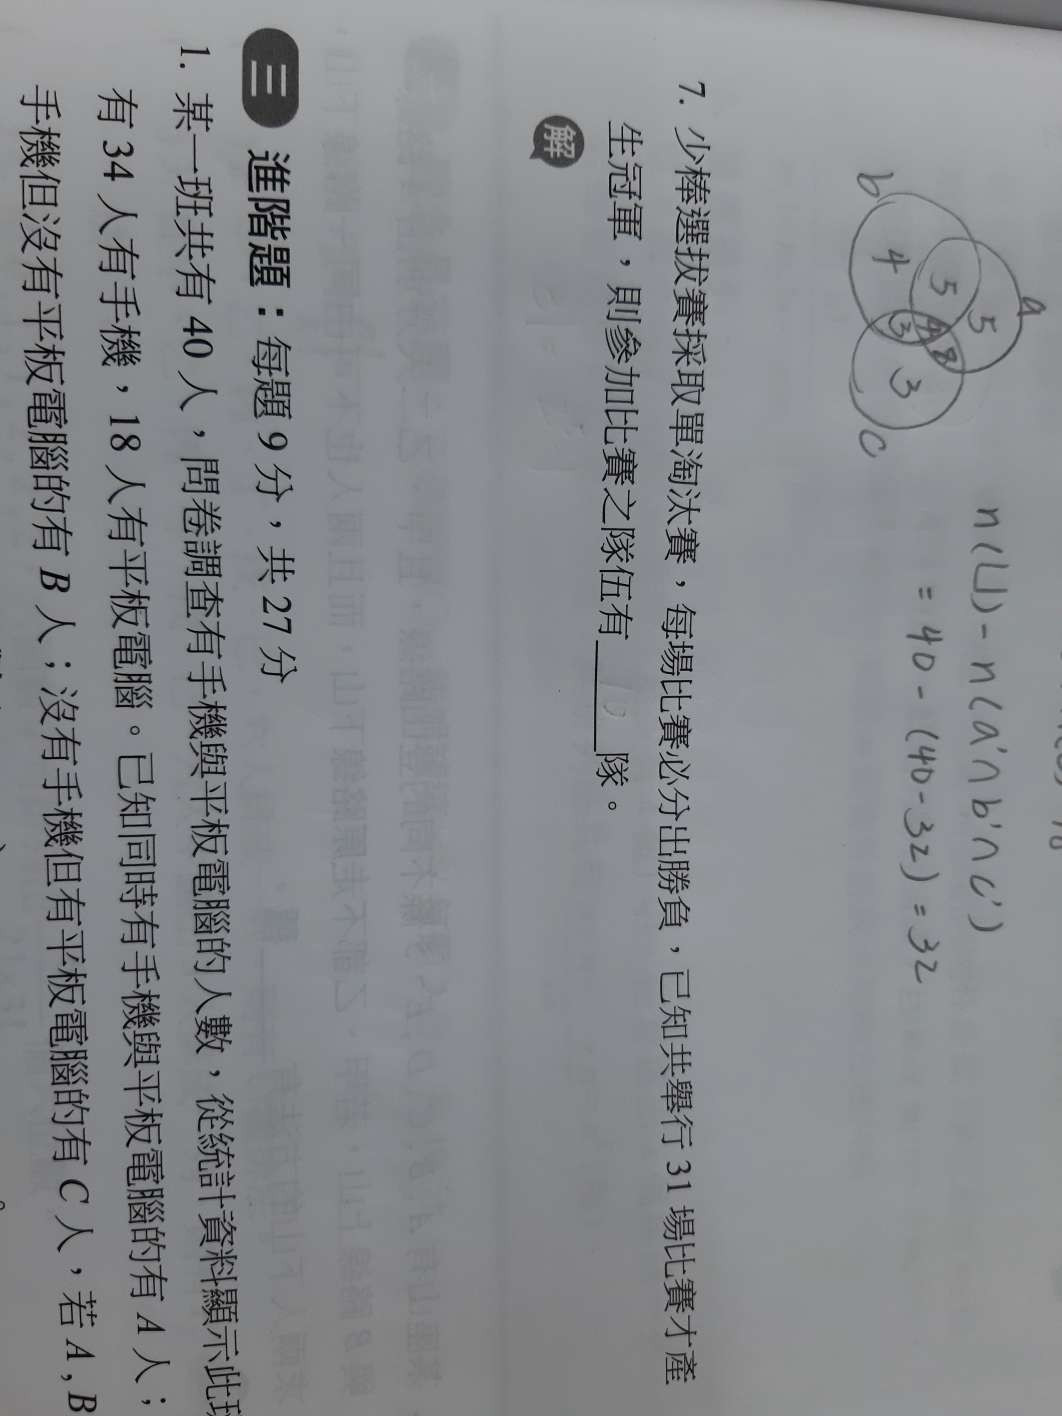 n(U) - n(a'∩b'∩c')
= 40 - (40-32) = 32
a
b
5
4
5
4
2
3
3
c
7. 少棒選拔賽採取單淘汰賽，每場比賽必分出勝負，已知共舉行 31 場比賽才產
生冠軍，則參加比賽之隊伍有 隊。
解
三 進階題：每題 9 分，共 27 分
1. 某一班共有 40 人，問卷調查有手機與平板電腦的人數，從統計資料顯示此
有 34 人有手機，18 人有平板電腦。已知同時有手機與平板電腦的有 A 人；
手機但沒有平板電腦的有 B 人；沒有手機但有平板電腦的有 C 人，若 A , B